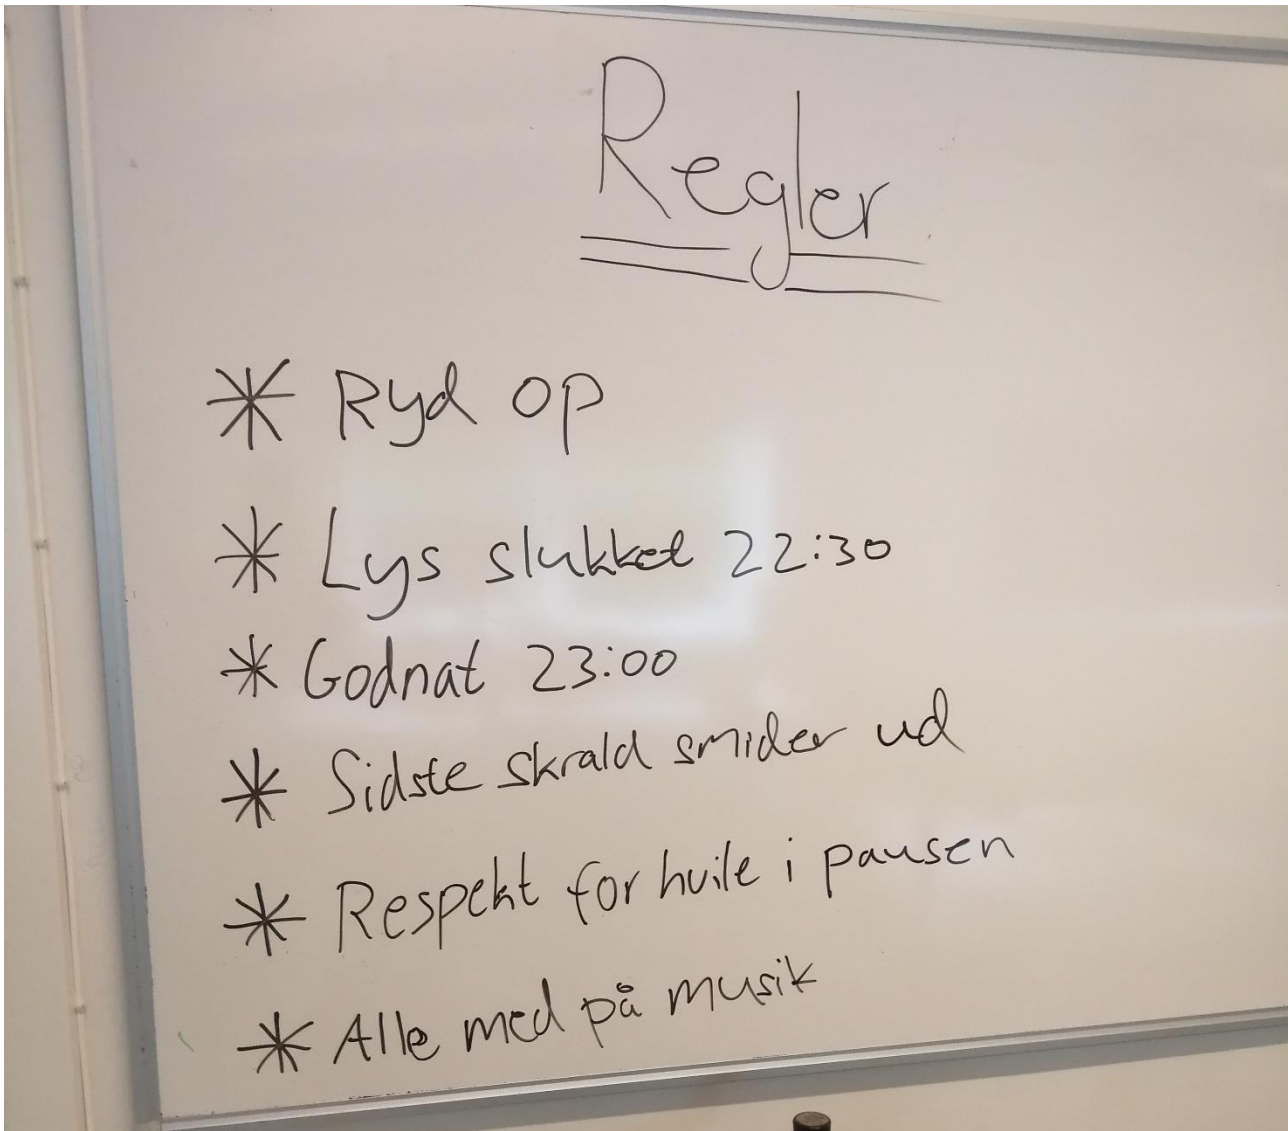 Regler
* Ryd op
* Lys slukket 22:30
* Godnat 23:00
* Sidste skrald smider ud
* Respekt for hvile i pausen
* Alle med på musik